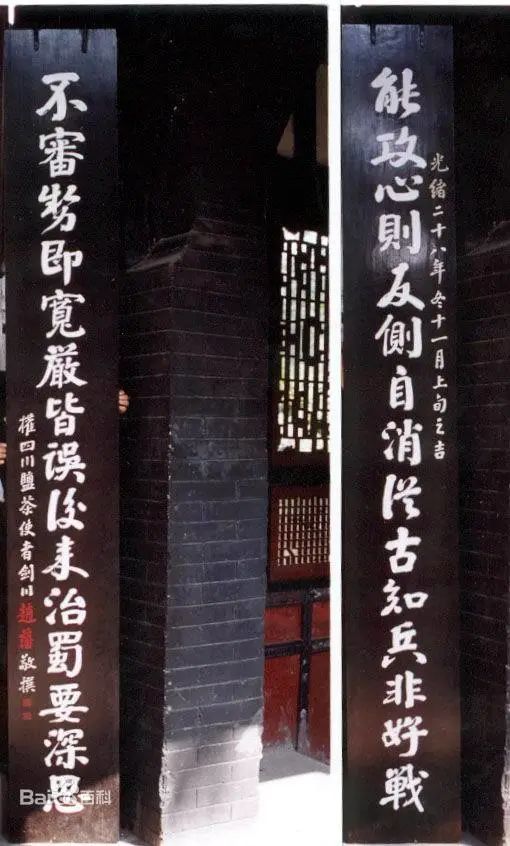 光緒二十八年冬十一月上旬之吉
能攻心則反側自消從古知兵非好戰
不審勢即寬嚴皆誤後來治蜀要深思
權四川鹽茶使者劍川趙藩敬撰
Bai百科